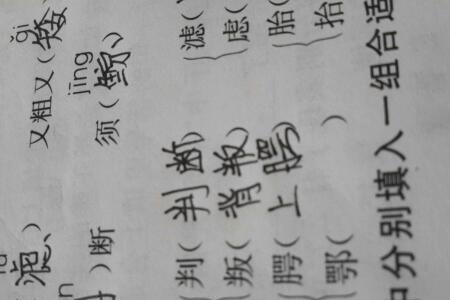 ǎi
滤、 又粗又(矮
jīng
)断 须(鲸、
判(判断) 滤(
叛(背叛) 虑(
腭(上腭) 胎(
鄂( ) 抬(
分别填入一组合适